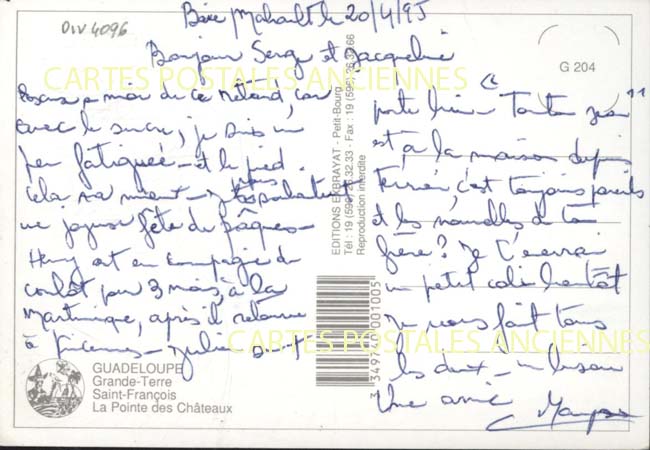 DIV 4096
Baie Mahault le 20/4/95
Bonjour Serge et Jacqueline
CARTES POSTALES ANCIENNES
G 204
moi de ce retard, car
avec le sucre, je suis un
peu fatiguée - et le pied.
Cela va mieux -
une joyeuse fête de pâques -
Henry est en compagnie du
pour 3 mois, à la
Martinique, après il retourne
à
porte bien - Tonton
est à la maison depuis
c'est toujours pareil
et les nouvelles de ton
frère? Je t'enverrai
un petit colis bientôt
Je vous fait tous
les deux - un bisou
Une amie
EDITIONS EXBRAYAT - Petit-Bourg
Tél : 19 (590) 26.32.33 - Fax : 19 (596) 36.30.66
Reproduction interdite
3 349740 001005
CARTES POSTALES ANCIENNES
GUADELOUPE
Grande-Terre
Saint-François
La Pointe des Châteaux